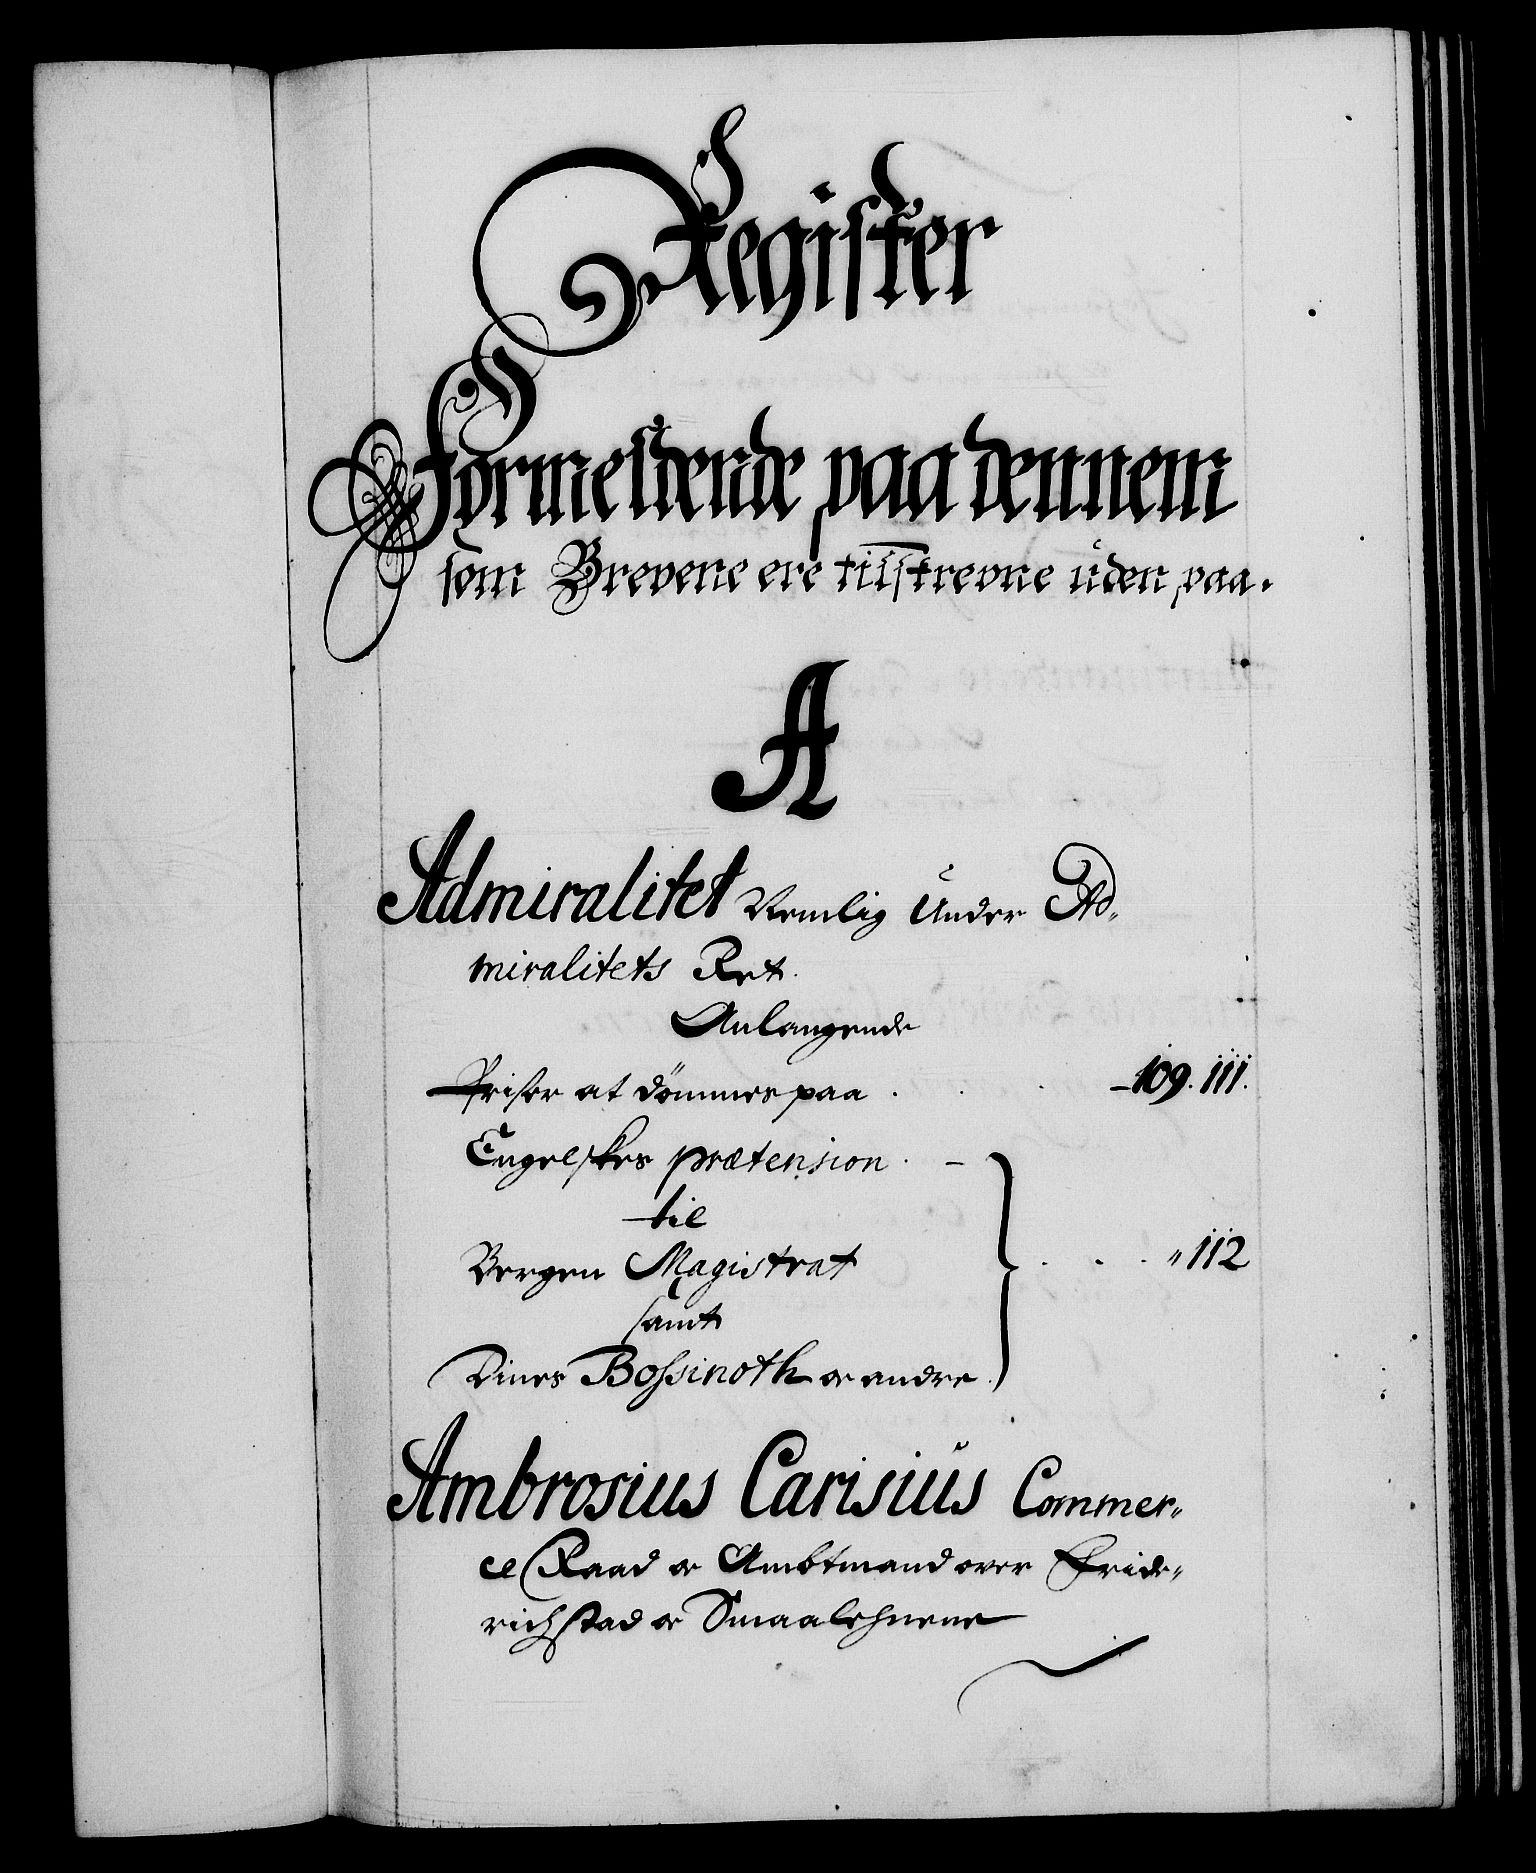 Register
Formeldende paa dennem
som Brevene ere tilskrevne uden paa.
A
Admiralitet Nemlig Under Ad-
miralitets Ret.
Anlangende
Priser at dömmes paa . . . 109. 111.
Engelskes prætension . –
til
Bergen Magistrat
samt . . . " 112
Dines Bossinoth oc andre.
Ambrosius Carisius Commer-
ce Raad oc Ambtmand over Fride-
richstad oc Smaalehnene